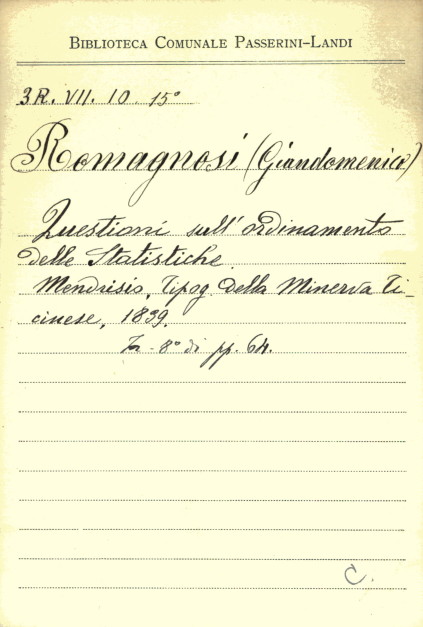 BIBLIOTECA COMUNALE PASSERINI-LANDI
3R. VII. 10. 15°
Romagnosi (Giandomenico)
Questioni sull'ordinamento
delle Statistiche.
Mendrisio, Tipog. della Minerva Ti-
cinese, 1839.
In-8° di pp. 64.
C.